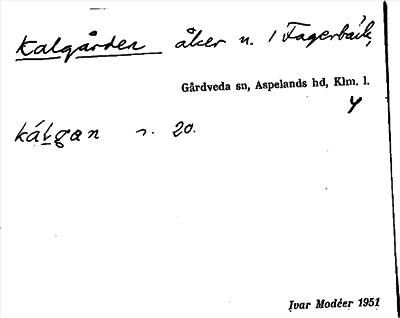 Kalgården åker n. 1 Fagerbäck,
Gårdveda sn, Aspelands hd, Klm. l.
4
kálgan n. 20.
Ivar Modéer 1951